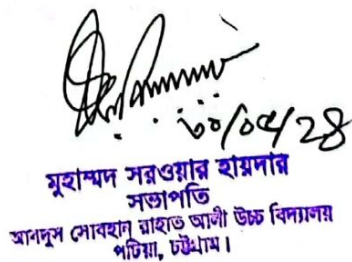 ৩০/০৫/২৪
মুহাম্মদ সরওয়ার হায়দার
সভাপতি
আবদুস সোবহান রাহাত আলী উচ্চ বিদ্যালয়
পটিয়া, চট্টগ্রাম।